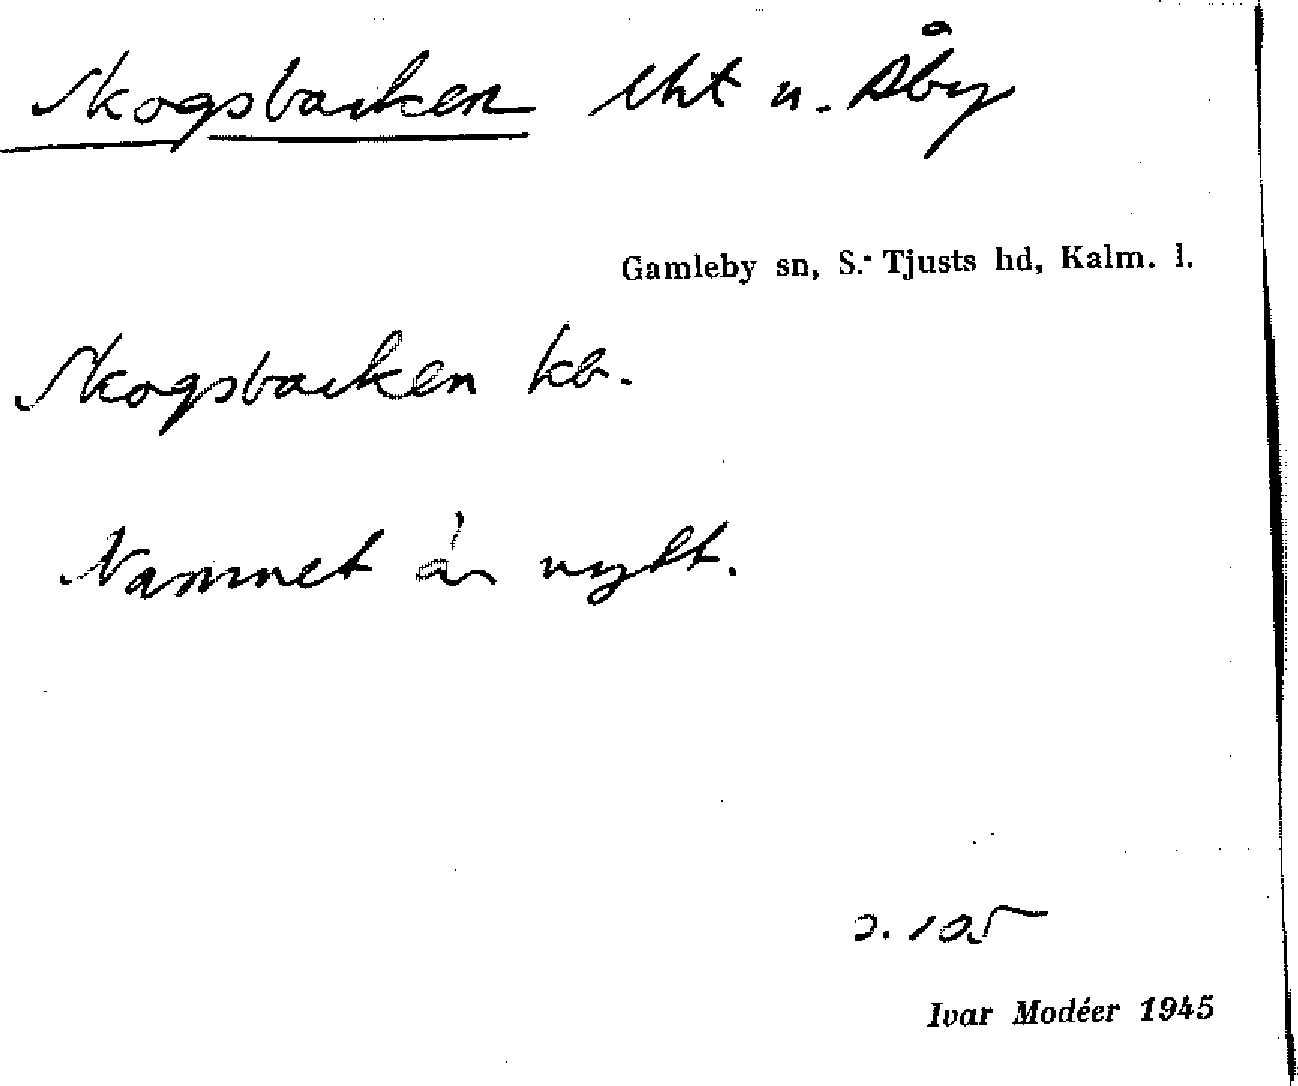 Skogsbacken lht u. Åby
Gamleby sn, S. Tjusts hd, Kalm. l.
Skogsbacken kb.
Namnet är nytt.
s. 105
Ivar Modéer 1945